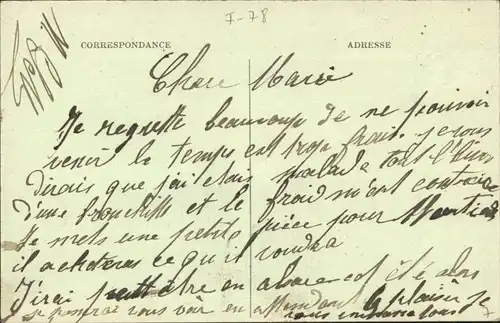 I-78
CORRESPONDANCE
ADRESSE
Chere Marie
Je regrette beaucoup de ne pouvoir
venir le temps est trop frais. je vous
dirais que j'ai etais malade tout l'hiver
d'une bronchitte et le froid m'est contraire
Je mets une petite pièce pour
il achetera ce qu'il voudra
J'irai peut être en alsace cet été alors
je pourrai vous voir en attendant le plaisir je
vous embrasse tous